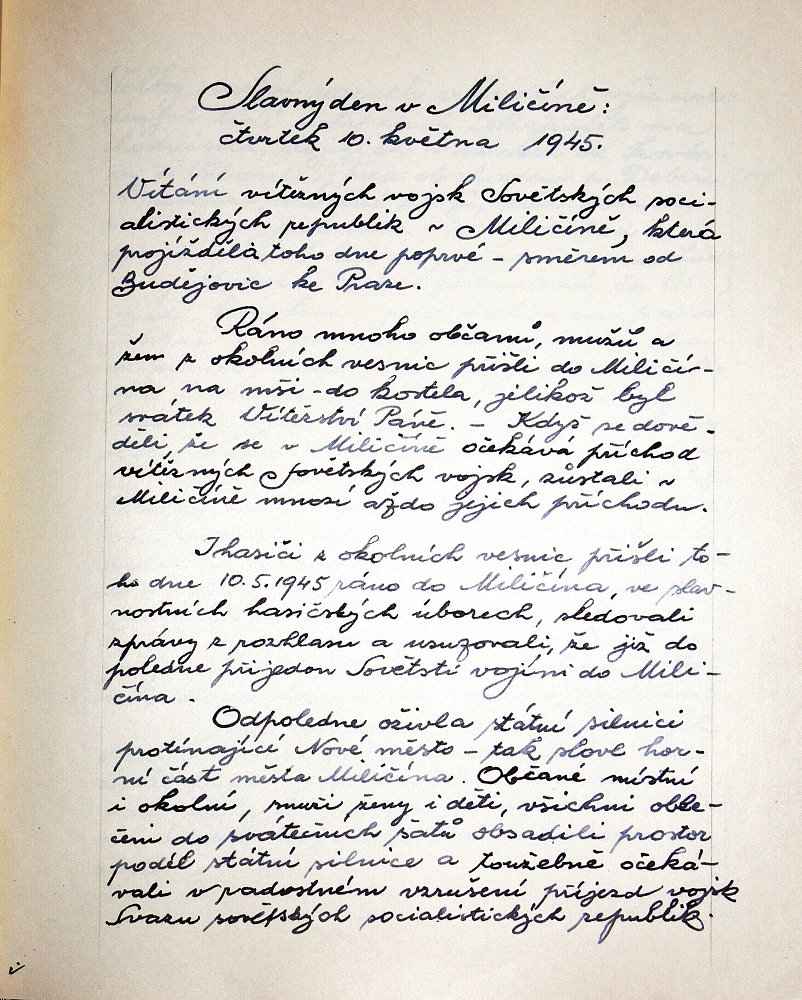 Slavný den v Miličíně:
čtvrtek 10. května 1945.
Vítání vítězných vojsk Sovětských soci-
alistických republik v Miličíně, která
projížděla toho dne poprvé - směrem od
Budějovic ke Praze.
Ráno mnoho občanů, mužů a
žen z okolních vesnic přišli do Miličí-
na na mši - do kostela, jelikož byl
svátek Vítězství Páně. - Když se dově-
děli, že se v Miličíně očekává příchod
vítězných Sovětských vojsk, zůstali v
Miličíně mnozí až do jejich příchodu.
I hasiči z okolních vesnic přišli to-
ho dne 10.5.1945 ráno do Miličína, ve slav-
nostních hasičských úborech, sledovali
zprávy z rozhlasu a usuzovali, že již do
poledne přijedou Sovětští vojíni do Mili-
čína.
Odpoledne oživla státní silnici
protínající Nové město - tak slove hor-
ní část města Miličína. Občané místní
i okolní, muži, ženy i děti, všichni oble-
čeni do svátečních šatů obsadili prostor
podél státní silnice a toužebně očeká-
vali v radostném vzrušení příjezd vojsk
Svazu sovětských socialistických republik.